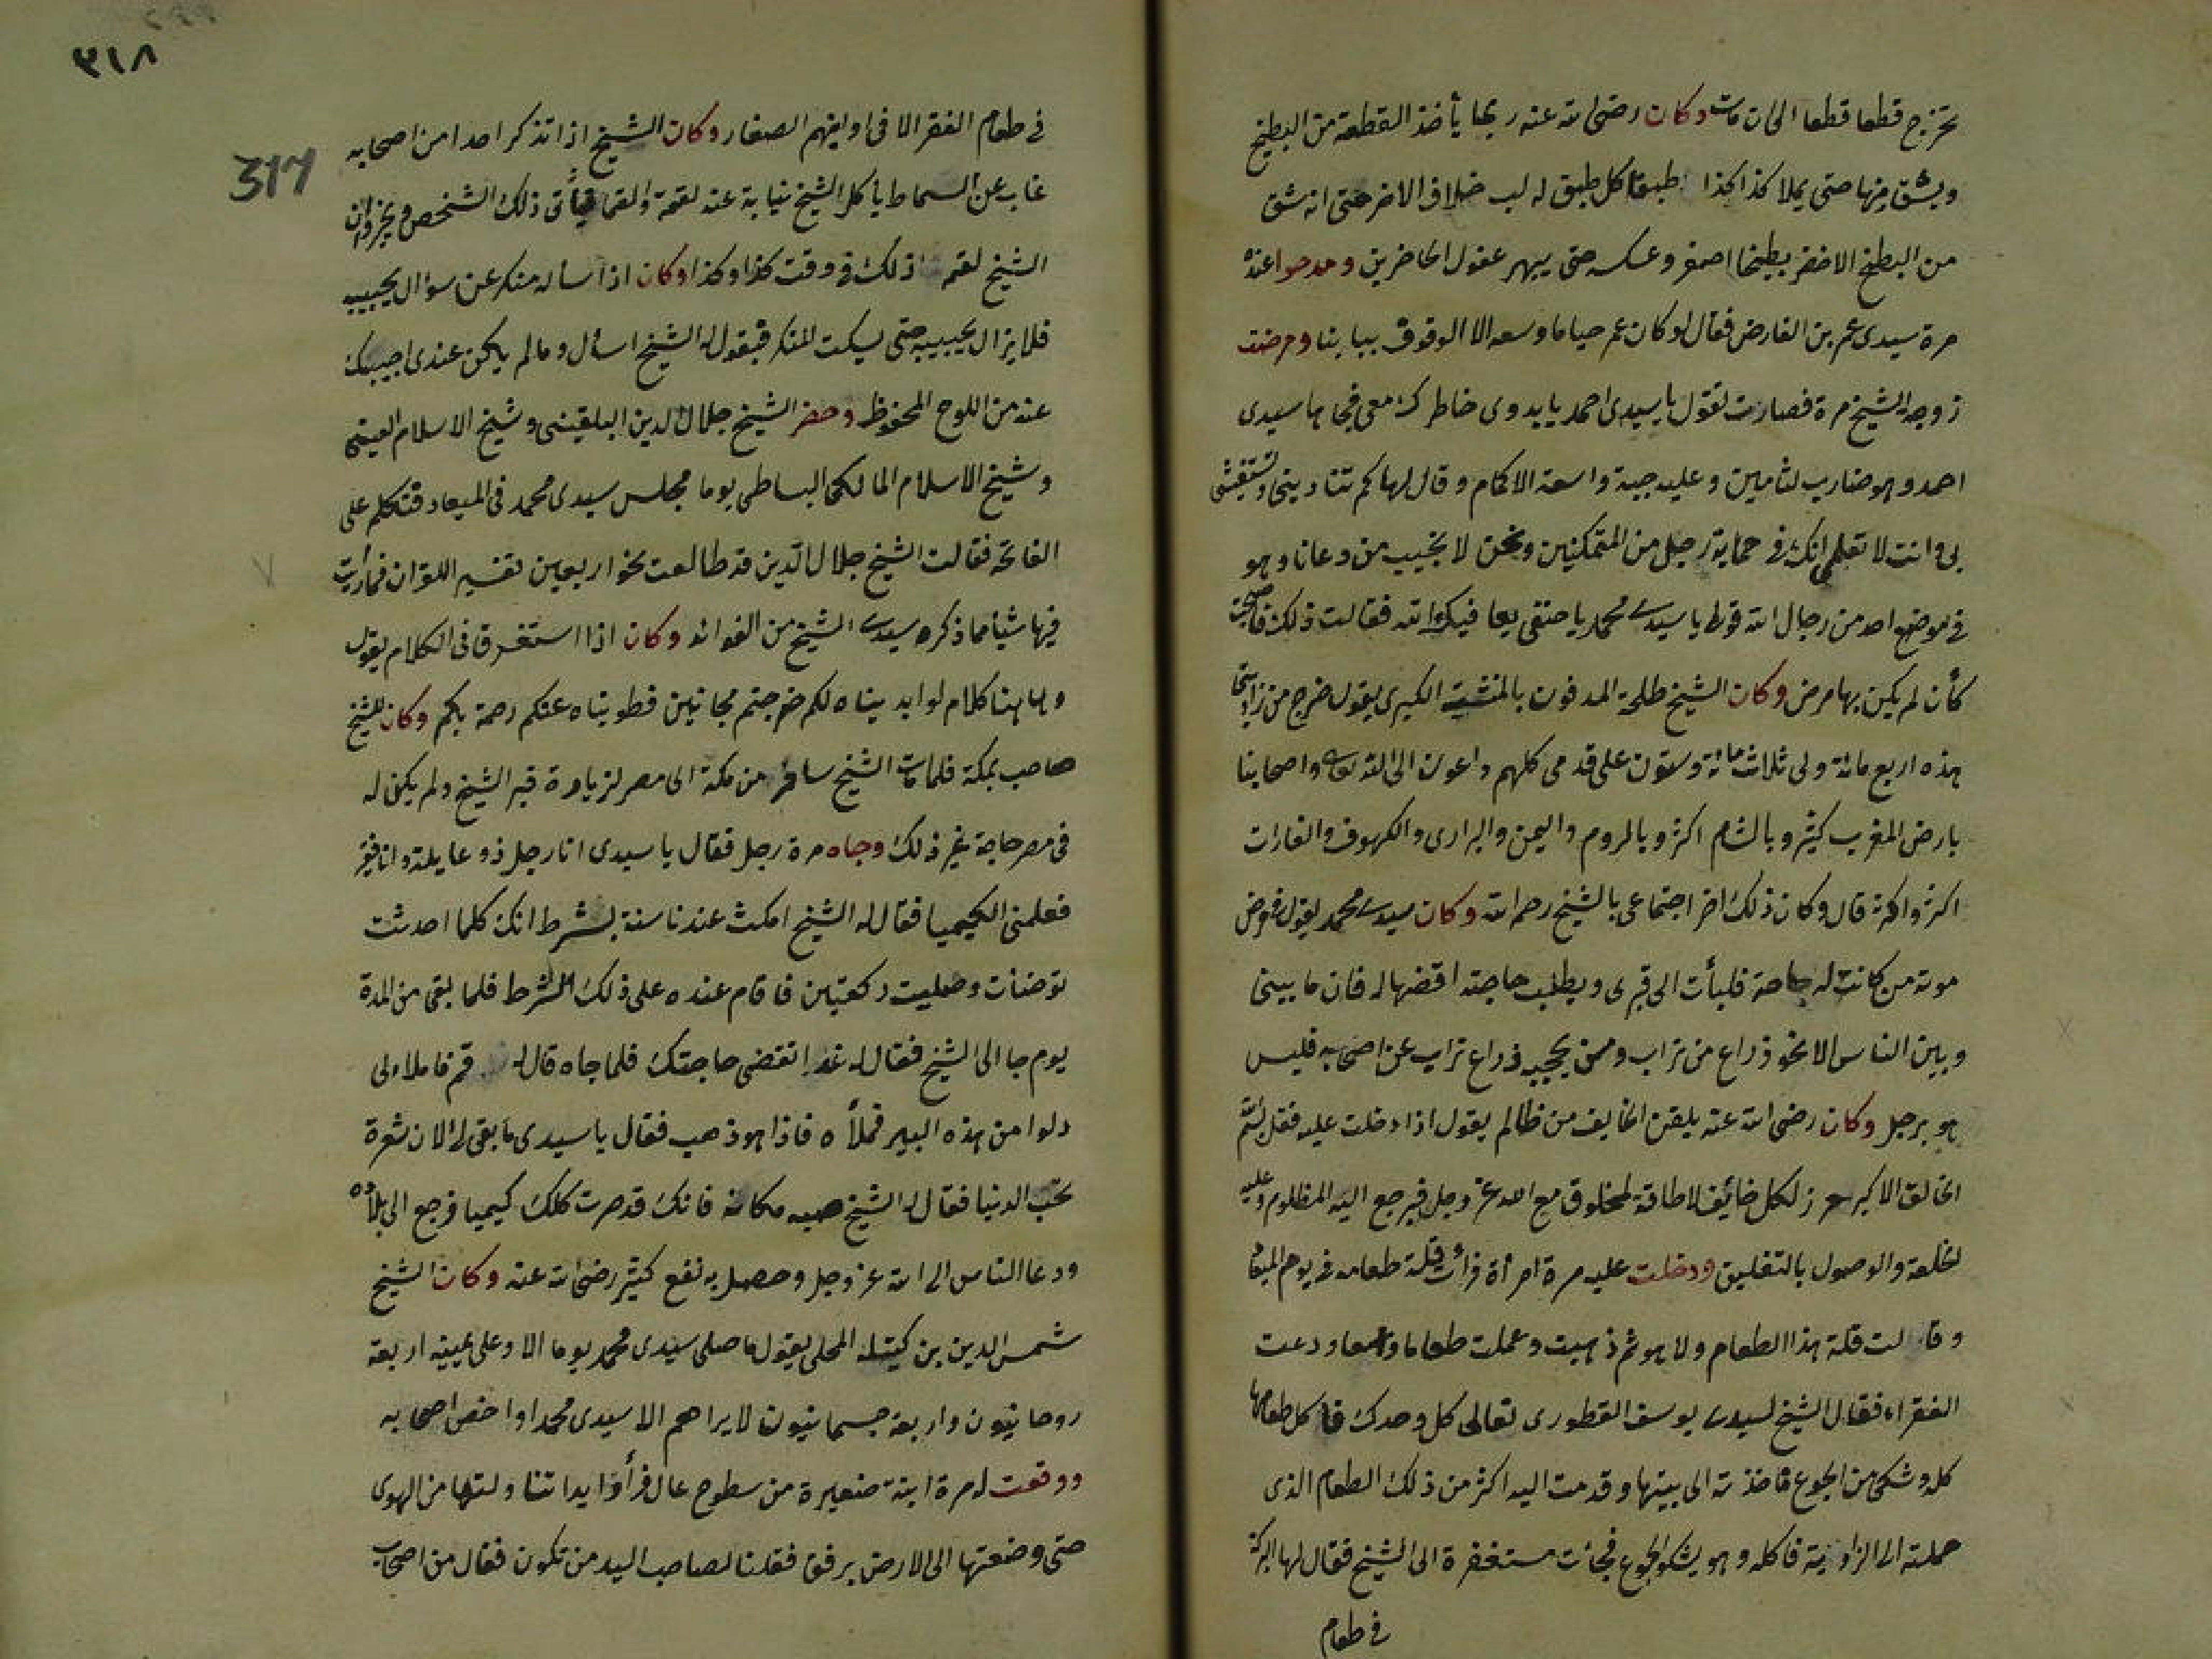 تخرج قطعا قطعا الى ان مات وكان رضى الله عنه ربما يأخذ القطعة من البطيخ
ويشق منها حتى يملا كذا كذا طبقا كل طبق له لب خلاف الاخر حتى انه شق
من البطيخ الاخضر بطيخا اصفر وعكسه حتى يبهر عقول الحاضرين ومدحوا عنده
مرة سيدى عمر بن الفارض فقال لو كان عمر حيا ما وسعه الا الوقوف ببابنا ومرضت
زوجة الشيخ مرة فصارت تقول يا سيدى احمد يا بدوى خاطرك معى فجاها سيدى
احمد وهو ضارب لثامين وعليه جبة واسعة الاكمام وقال لها كم تناديني وتستغيثى
بى وانت لا تعلمى انك فى حماية رجل من المتمكنين ونحن لا نجيب من دعانا وهو
فى موضع احد من رجال الله قولى يا سيدى محمد يا حنفى يعافيك الله فقالت ذلك فاصبحت
كأن لم يكن بها مرض وكان الشيخ طلحة المدفون بالمنشية الكبرى يقول خرج من زاويتى
هذه اربع مائة ولى ثلاث مائة وستون على قدمى كلهم داعون الى الله تعالى واصحابنا
بارض المغرب كثير وبالشام اكثر وبالروم واليمن والبرارى والكهوف والغارات
اكثر واكثر قال وكان ذلك اخر اجتماعى بالشيخ رحمه الله وكان سيدى محمد يقول فى مرض
موته من كانت له حاجة فليأت الى قبرى ويطلب حاجته اقضها له فان ما بينى
وبين الناس الا نحو ذراع من تراب ومن يحجبه ذراع تراب عن اصحابه فليس
هو برجل وكان رضى الله عنه يلقن الخايف من ظالم يقول اذا دخلت عليه فقل بسم الله
الخالق الاكبر حرز لكل خائف لا طاقة لمخلوق مع الله عز وجل فيرجع اليه المظلوم وعليه
الخلعة والوصول بالتغليق ودخلت عليه مرة امرأة فرأت قلة طعامه فى يوم الميعاد
وقالت قلة هذا الطعام ولا هو ثم ذهبت وعملت طعاما ودعت
الفقراء فقال الشيخ لسيدى يوسف القطورى تعالى كل وحدك فاكل طعامها
كله وشكى من الجوع فاخذته الى بيتها وقدمت اليه اكثر من ذلك الطعام الذى
حملته الى الزاوية فاكله وهو يشكو الجوع فجائت مستغفرة الى الشيخ فقال لها البركة
فى طعام
٣١٨
317
فى طعام الفقرا لا فى اوانيهم الصغار وكان الشيخ اذا تذكر احدا من اصحابه
غاب عن السماط يأكل الشيخ نيابة عنه لقمة والقما فيأتى ذلك الشخص ويخبر وان
الشيخ لقمه ذلك فى وقت كذا وكذا وكان اذا سأله منكر عن سؤال يجيبه
فلا يزال يجيبه حتى يسكت المنكر فيقول له الشيخ اسأل وما لم يكن عندى اجيبك
عنه من اللوح المحفوظ وحضر الشيخ جلال الدين البلقينى وشيخ الاسلام العينى
وشيخ الاسلام المالكى البساطى يوما مجلس سيدى محمد فى الميعاد فتكلم على
الفاتحة فقالت الشيخ جلال الدين قد طالعت نحو اربعين تفسير القران فما رأيت
فيها شيأ مما ذكره سيدى الشيخ من الفوائد وكان اذا استغرقا فى الكلام يقول
وها هنا كلام لو ابديناه لكم خرجتم مجانين فطويناه عنكم رحمة بكم وكان للشيخ
صاحب بمكة فلما مات الشيخ سافر من مكة الى مصر لزيارة قبر الشيخ ولم يكن له
فى مصر حاجة غير ذلك وجاه مرة رجل فقال يا سيدى انا رجل ذو عايلة وانا فقير
فعلمنى الكيميا فقال له الشيخ امكث عندنا سنة بشرط انك كلما احدثت
توضئات وصليت ركعتين فاقام عنده على ذلك الشرط فلما بقى من المدة
يوم جا الى الشيخ فقال له غدا تقضى حاجتك فلما جاه قال له قم فاملا لى
دلوا من هذه البير فملأه فاذا هو ذهب فقال يا سيدى ما بقى لى الان شعرة
تحب الدنيا فقال له الشيخ صبه مكانه فانك قد صرت كلك كيميا فرجع الى بلاده
ودعا الناس الى الله عز وجل وحصل به نفع كثير رضى الله عنه وكان الشيخ
شمس الدين بن كتيله المحلى يقول ما صلى سيدى محمد يوما الا وعلى يمينه اربعة
روحانيون واربعة جسمانيون لا يراهم الا سيدى محمد او اخص اصحابه
ووقعت له مرة ابنة صغيرة من سطوح عال فرأوا يدا تناولتها من الهوى
حتى وضعتها الى الارض برفق فقلنا لصاحب اليد من تكون فقال من اصحاب